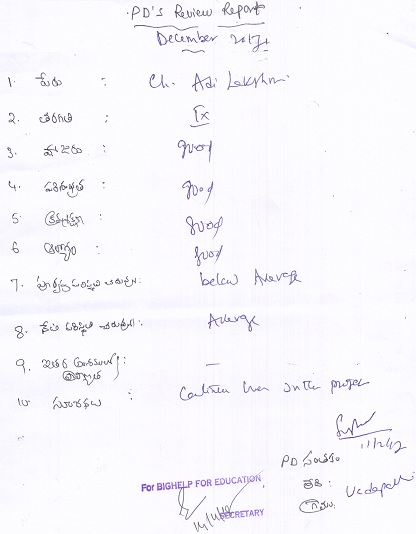 PD's Review Report
December 2017
1. పేరు : Ch. Adi Lakshmi
2. తరగతి : IX
3. హాజరు : good
4. పరిశుభ్రత : good
5. క్రమశిక్షణ : good
6. ఆరోగ్యం : good
7. పూర్వపు పరిస్థితి చదువులో : below Average
8. నేటి పరిస్థితి చదువులో : Average
9. ఇతర : —
10. సూచనలు : Continue her in the project
PD సంతకం
తేది :
గ్రామం : Vadapalli
For BIGHELP FOR EDUCATION
SECRETARY